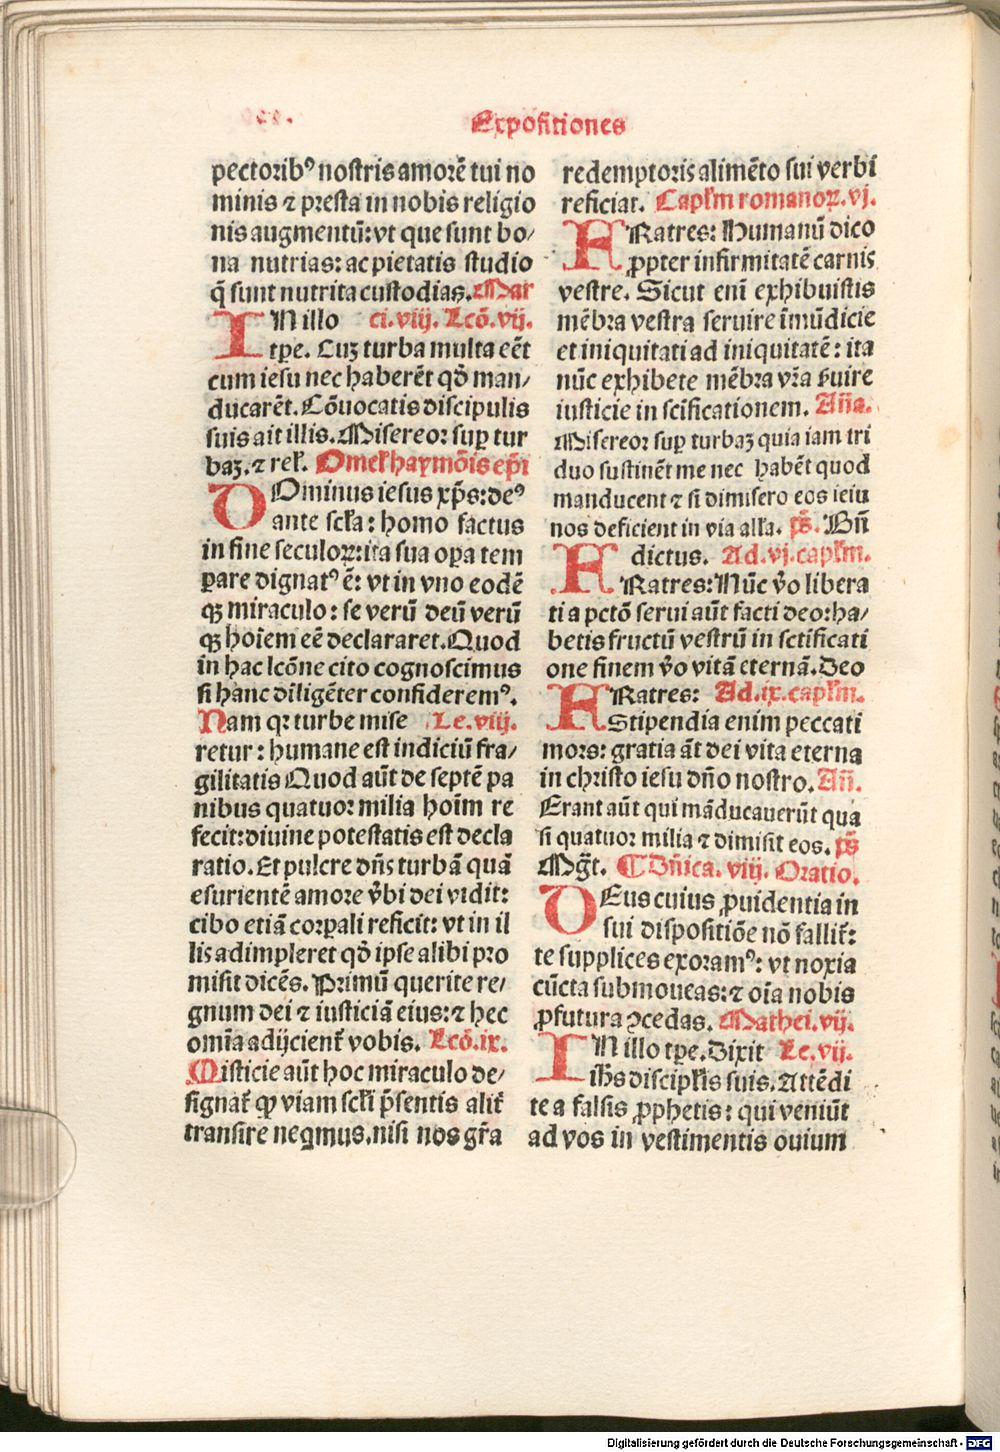 Expositiones
pectoribꝰ nostris amorē tui no
minis ⁊ presta in nobis religio
nis augmentū: vt que sunt bo/
na nutrias: ac pietatis studio
q̄ sunt nutrita custodias. Mar
IN illo ci. viij. Lcō. vij.
tꝑe. Cuꝫ turba multa eēt
cum iesu nec haberēt qđ man/
ducarēt. Cōuocatis discipulis
suis ait illis. Misereor suꝑ tur
baꝫ. ⁊ rel.
DOminus iesus xp̄s: deꝰ
ante scl̄a: homo factus
in fine seculoꝝ: ita sua oꝑa tem
ꝑare dignatꝰ ē: vt in vno eodē
qꝫ miraculo: se verū deū verū
qꝫ hoīem eē declararet. Quod
in hac lcōne cito cognoscimus
si hanc diligēter confideremꝰ.
Nam qꝛ turbe mise Le. viij.
retur: humane est indiciū fra/
gilitatis Quod aūt de septē pa
nibus quatuor milia hoīm re
fecit: diuine potestatis est decla
ratio. Et pulcre dn̄s turbā quā
esurientē amore v̄bi dei vidit:
cibo etiā corꝑali reficit: vt in il
lis adimpleret qđ ipse alibi pro
misit dicēs. Primū querite re/
gnum dei ⁊ iusticiā eius: ⁊ hec
omīa adijcient᷑ vobis. Lcō. ix.
Misticie aūt hoc miraculo de/
signat᷑ ꝙ viam scl̄i p̄sentis alit᷑
transire neqmus, nisi nos gr̄a
redemptoris alimēto sui verbi
reficiat. Capl̄m romanoꝝ. vj.
FRatres: Humanū dico
ꝓpter infirmitatē carnis
vestre. Sicut enī exhibuistis
mēbra vestra seruire īmūdicie
et iniquitati ad iniquitatē: ita
nūc exhibete mēbra vr̄a ẜuire
iusticie in scificationem. An̄a.
Misereor suꝑ turbaꝫ quia iam tri
duo sustinēt me nec habēt quod
manducent ⁊ si dimisero eos ieiu
nos deficient in via all̄a. ps̄. Bn̄
dictus. Ad. vj. capl̄m.
FRatres: Nūc v̄o libera
ti a pctō serui aūt facti deo: ha/
betis fructū vestrū in sctificati
one finem v̄o vitā eternā. Deo
FRatres: Ad. ix. capl̄m.
Stipendia enim peccati
mors: gratia āt dei vita eterna
in christo iesu dn̄o nostro. An̄.
Erant aūt qui māducauerūt qua
si quatuor milia ⁊ dimisit eos. ps̄
Mgt̄. ¶ Dn̄ica. viij. Oratio.
DEus cuius ꝓuidentia in
sui dispositiōe nō fallit᷑:
te supplices exoramꝰ: vt noxia
cūcta submoueas: ⁊ oīa nobis
ꝓfutura ↄcedas. Mathei. vij.
IN illo tꝑe. Dixit Le. vij.
ih̄s discipl̄is suis. Attēdi
te a falsis ꝓphetis: qui veniūt
ad vos in vestimentis ouium
Digitalisierung gefördert durch die Deutsche Forschungsgemeinschaft - DFG